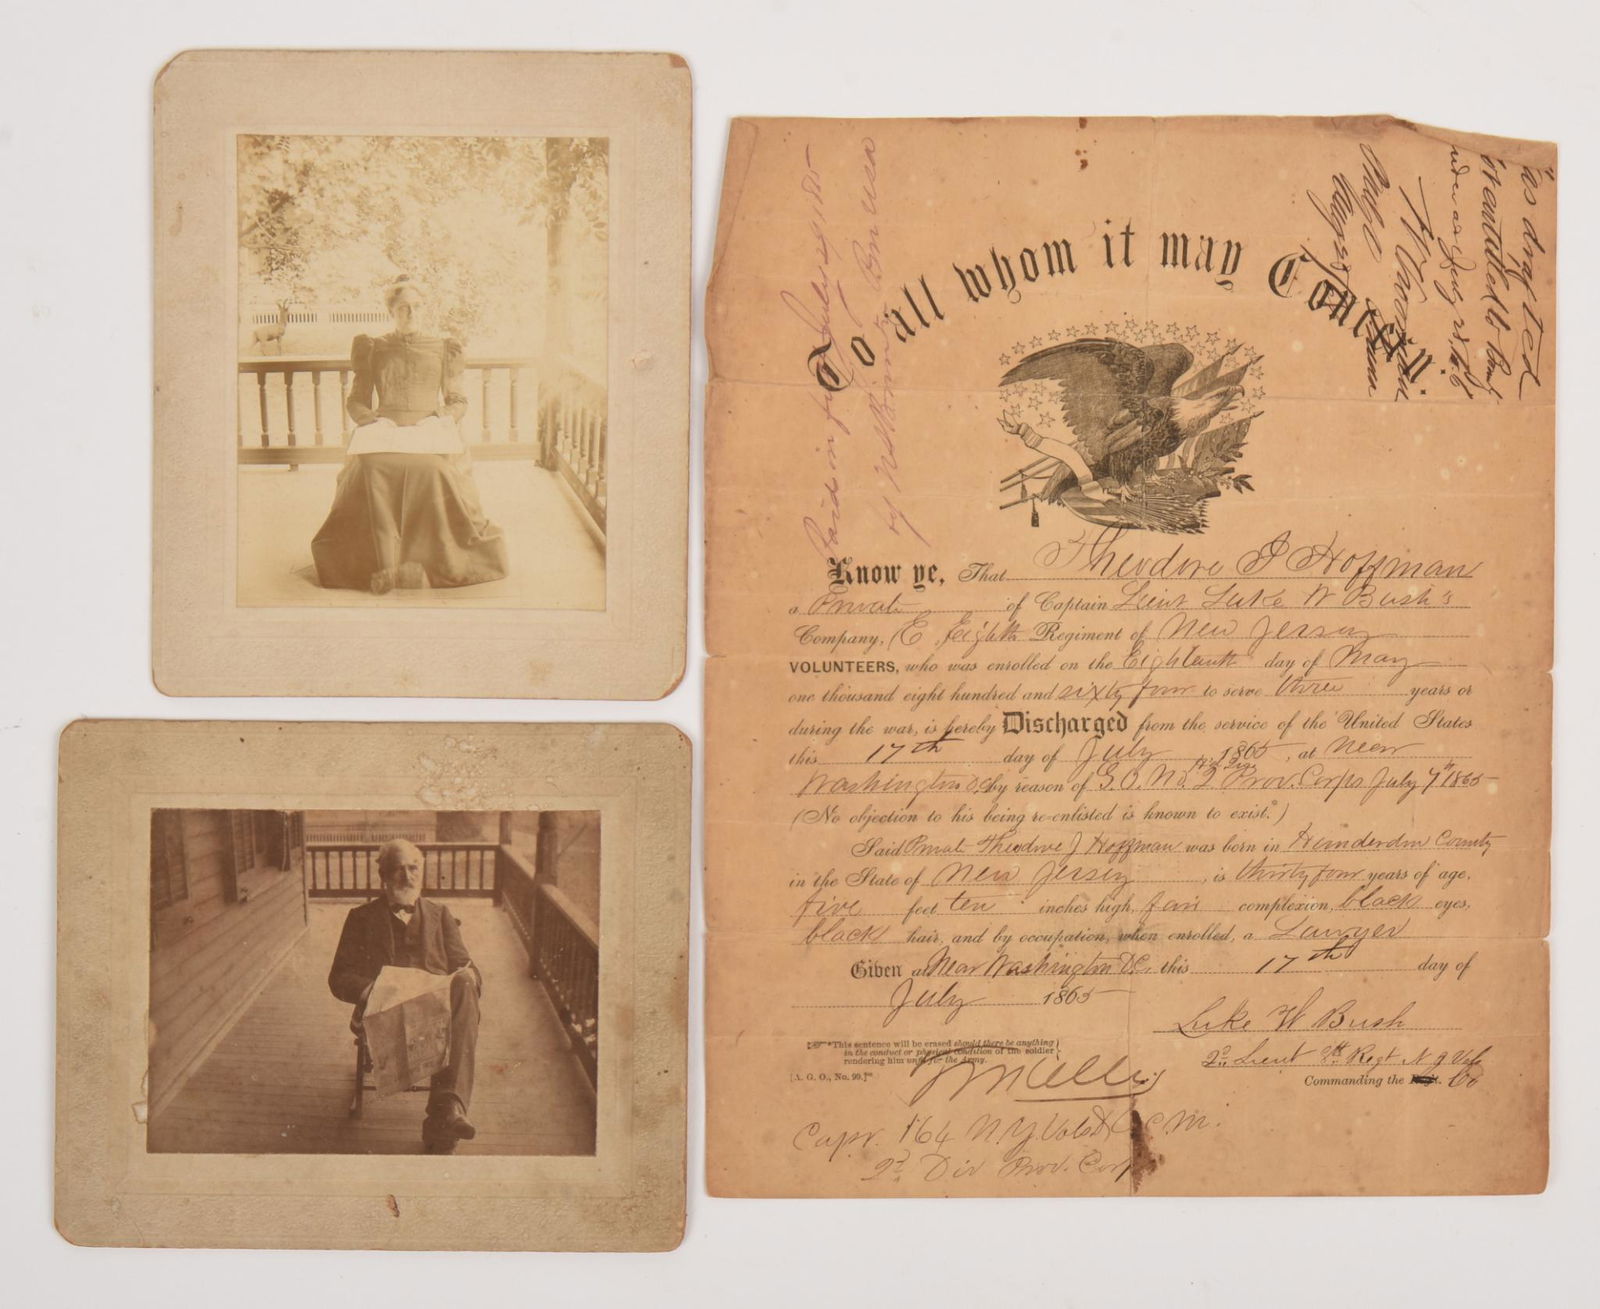 To all whom it may Concern.
Know ye, That Theodore J Hoffman
a Private of Captain Lieut Luke W Bush's
Company, (E Eighth Regiment of New Jersey
VOLUNTEERS, who was enrolled on the Eighteenth day of May
one thousand eight hundred and sixty four to serve three years or
during the war, is hereby Discharged from the service of the United States
this 17th day of July 1865, at Near
Washington D.C. by reason of G.O. No. 2 Prov. Corps July 7th 1865
(No objection to his being re-enlisted is known to exist.*)
Said Privat Theodore J Hoffman was born in Hunderdon County
in the State of New Jersey, is thirty four years of age,
five feet ten inches high, fair complexion, black eyes,
black hair, and by occupation, when enrolled, a Lawyer
Given at Near Washington D.C. this 17th day of
July 1865
Luke W Bush
2d Lieut 8th Regt N J Vols
Commanding the Regt. Co
*This sentence will be erased should there be anything
in the conduct or physical condition of the soldier
rendering him unfit for the Army.
[A. G. O., No. 99.]
Capt. 164 N.Y. Vols & A.C.M.
2d Div Prov. Corps
Paid in full
by
as drafted